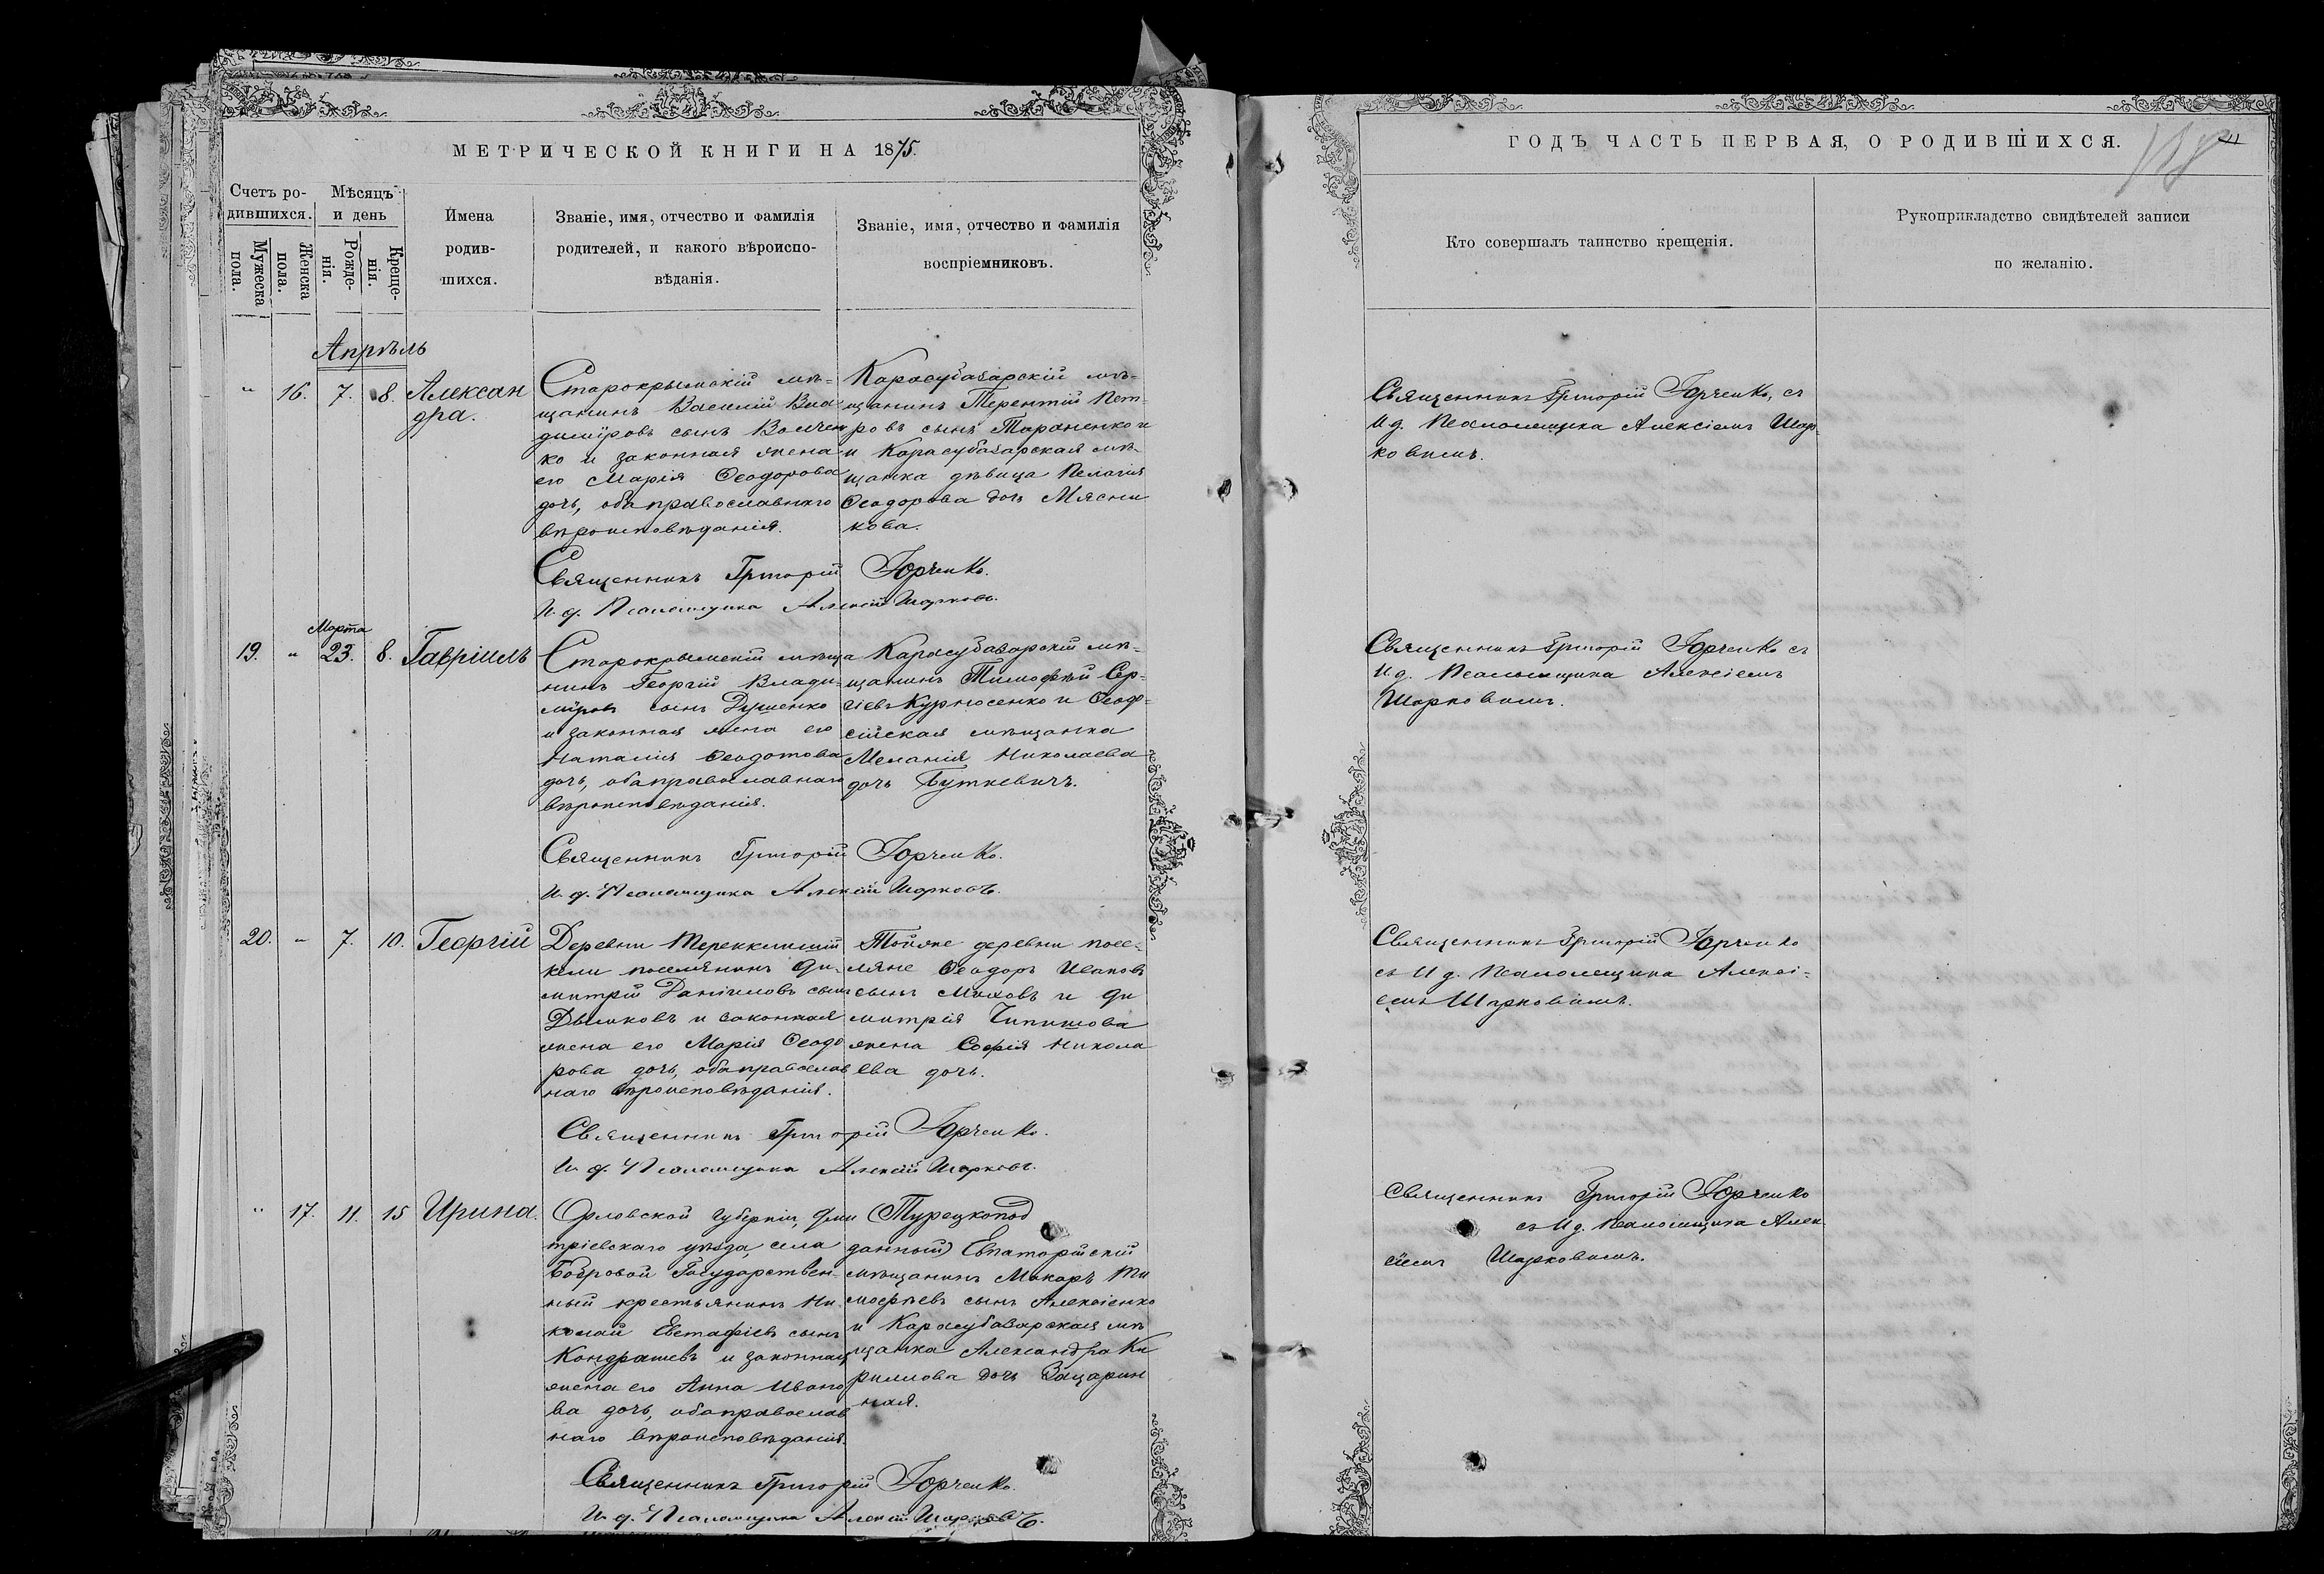 МЕТРИЧЕСКОЙ КНИГИ НА 1875.
Счетъ ро-
дившихся.
Мужеска
пола.
Женска
пола.
Мѣсяцъ
и день
Рожде-
нія.
Креще-
нія.
Имена
родив-
шихся.
Званіе, имя, отчество и фамилія
родителей, и какого вѣроиспо-
вѣданія.
Званіе, имя, отчество и фамилія
воспріемниковъ.
Апрѣль
" 16. 7. 8. Алексан
дра.
Старокрымскій мѣ-
щанинъ Василій Вла
диміровъ сынъ
ко и законная жена
его Марія Ѳеодорова
дочь, оба православнаго
вѣроисповѣданія.
Карасубазарскій мѣ-
щанинъ Терентій Пет-
ровъ сынъ Тараненко и
и Карасубазарская мѣ-
щанка дѣвица Пелагія
Ѳеодорова дочь Мясни
кова.
Священникъ Григорій Юрченко.
И. д. Псаломщика Алексій Шарковъ.
19. " Марта 23. 8. Гавріилъ
Старокрымскій мѣща
нинъ Георгій Влади-
міровъ сынъ Душенко
и законная жена его
Наталія Ѳеодотова
дочь, оба православнаго
вѣроисповѣданія.
Карасубазарскій мѣ-
щанинъ Тимофѣй Сер-
гіевъ Курносенко и Ѳеодо-
сійская мѣщанка
Меланія Николаева
дочь Буткевичъ.
Священникъ Григорій Юрченко.
И. д. Псаломщика Алексій Шарковъ.
20. " 7. 10. Георгій
Деревни
поселянинъ Ди-
митрій Даніиловъ сынъ
и законная
жена его Марія Ѳеодо
рова дочь, оба православ
наго вѣроисповѣданія.
деревни посе-
ляне Ѳеодоръ Ивановъ
сынъ и Ди
митрія
жена Софія Никола
ева дочь.
Священникъ Григорій Юрченко.
И. д. Псаломщика Алексій Шарковъ.
" 17. 11. 15 Ирина.
Орловской губерніи, Дми
тріевскаго уѣзда, села
Бобровой Государствен-
ный крестьянинъ Ни-
колай Евстафіевъ сынъ
Кондрашевъ и законная
жена его Анна Ивано
ва дочь, оба православ
наго вѣроисповѣданія.
(Турецкопод
данный) Евпаторійскій
мѣщанинъ Макаръ Ти
мофѣевъ сынъ Алексіенко
и Карасубазарская мѣ
щанка Александра Ки
риллова дочь Зацарин
ная.
Священникъ Григорій Юрченко.
И. д. Псаломщика Алексій Шарковъ.
ГОДЪ ЧАСТЬ ПЕРВАЯ, О РОДИВШИХСЯ.
Кто совершалъ таинство крещенія.
Рукоприкладство свидѣтелей записи
по желанію.
Священникъ Григорій Юрченко, съ
И д. Псаломщика Алексіемъ Шар
ковымъ.
Священникъ Григорій Юрченко съ
И. д. Псаломщика Алексіемъ
Шарковымъ.
Священникъ Григорій Юрченко
съ И д. Псаломщика Алексі-
емъ Шарковымъ.
Священникъ Григорій Юрченко
съ И д. Псаломщика Алек
сіемъ Шарковымъ.